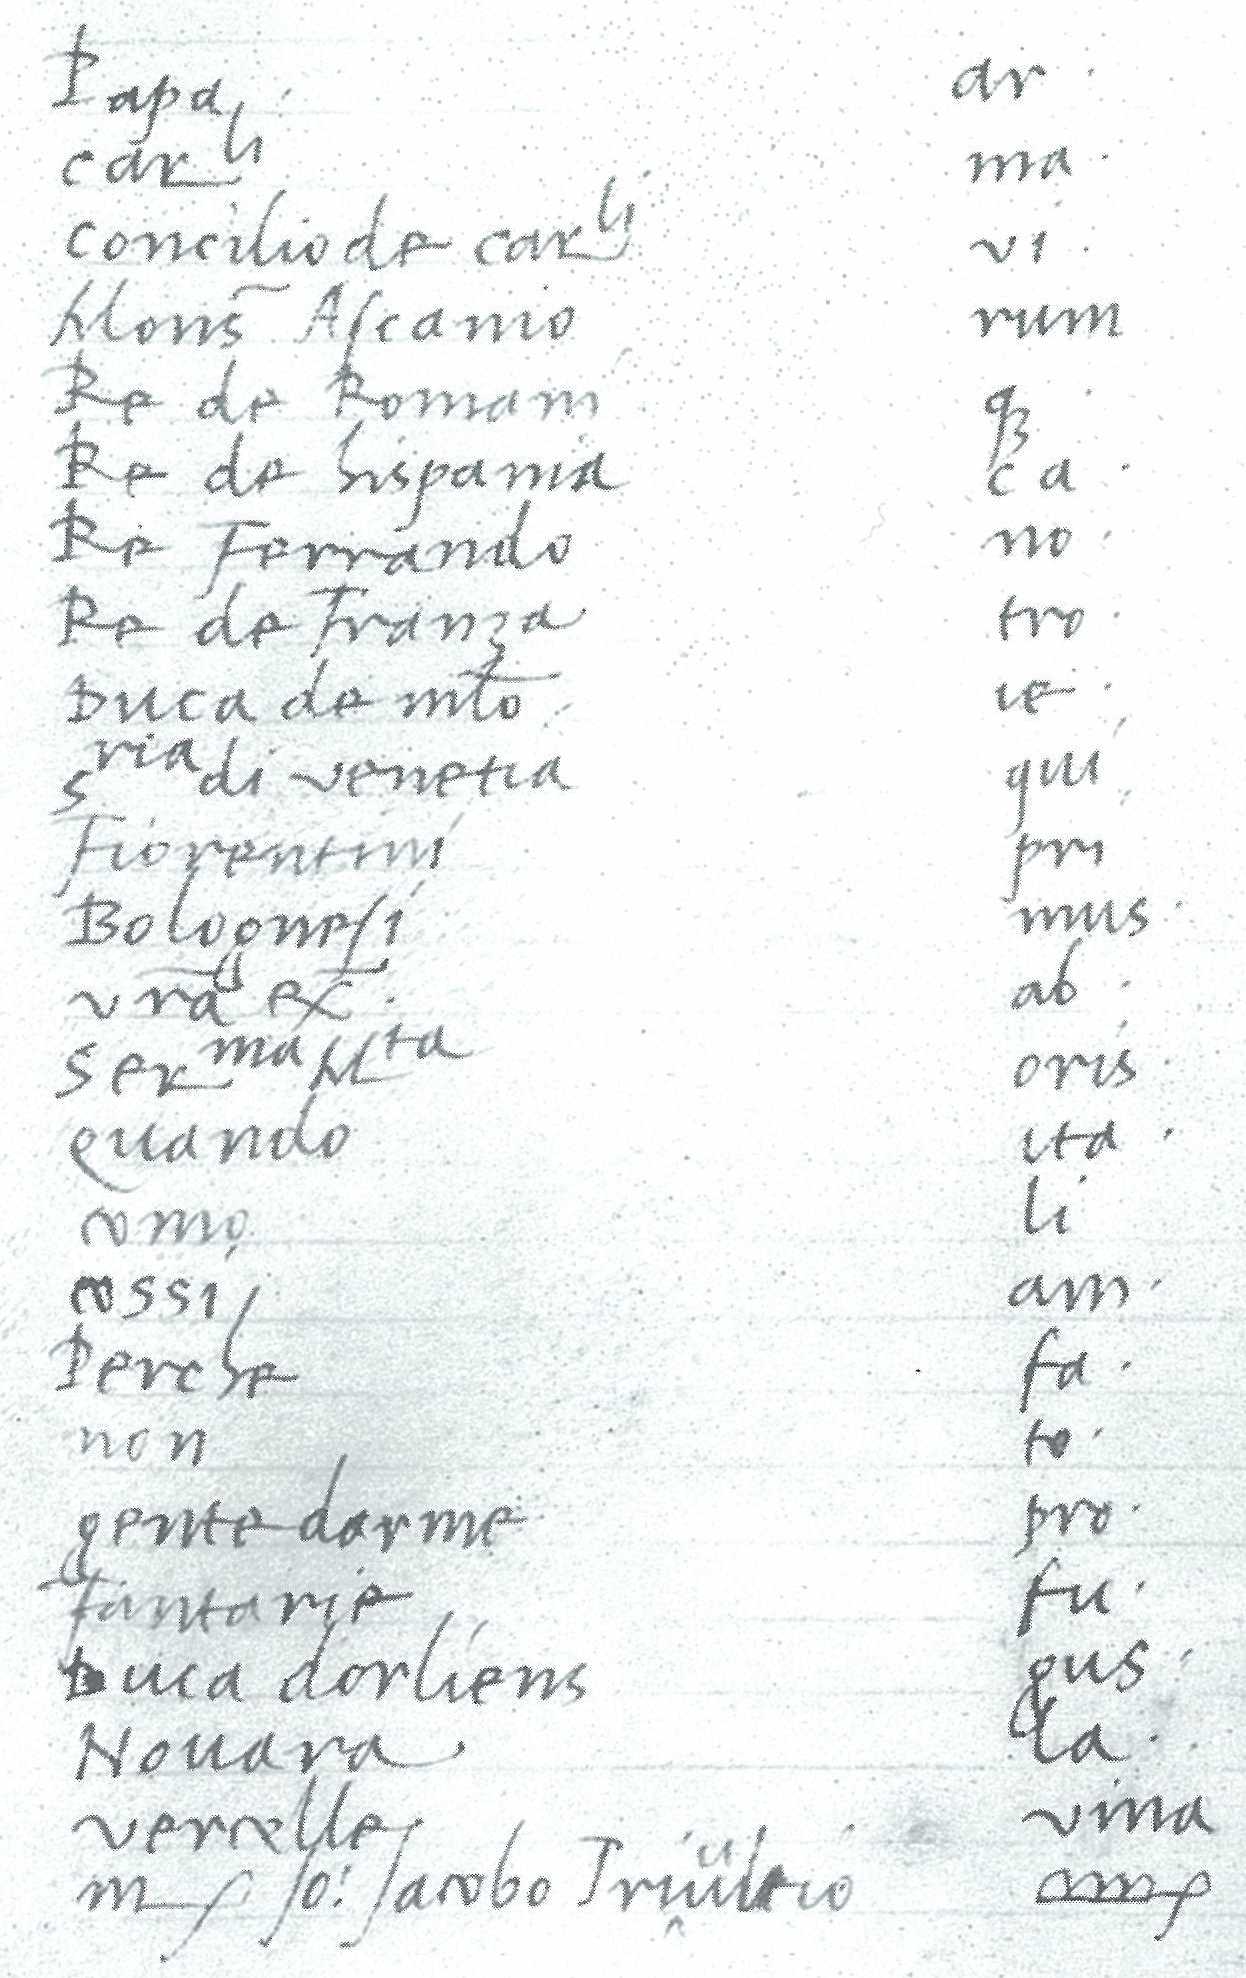 Papa ar ·
car.li ma ·
concilio de car.li vi ·
Mons~ Ascanio rum
Re de Romani qꝫ ·
Re de hispania ca ·
Re Ferrando no ·
Re de Franza tro ·
Duca de mlo ie ·
sria di venetia qui
Fiorentini pri
Bolognesi mus ·
vra ex. ab ·
Serma Mta oris ·
quando ita ·
como li
cossi am ·
Perche fa ·
non to ·
gente darme pro ·
fantarie fu ·
Duca dorliens gus ·
Nouara la ·
vercelle vina
m Jo: Jacobo Triultio